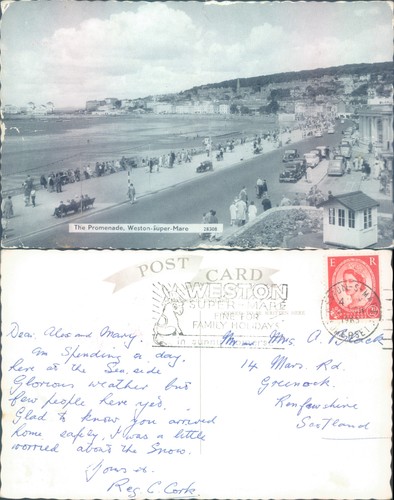 The Promenade, Weston-Super-Mare
28308
POST CARD
E R
WESTON
SUPER-MARE
FINE FOR
FAMILY HOLIDAYS
Dear Alex and Mary.
Am Spending a day
here at the Sea side
Glorious weather but
few people here yet.
Glad to know you arrived
home safely, I was a little
worried about the Snow.
Yours etc.
Reg C. Cork.
Mr and Mrs A. Black
14 Mars. Rd.
Greenock.
Renfrewshire
Scotland